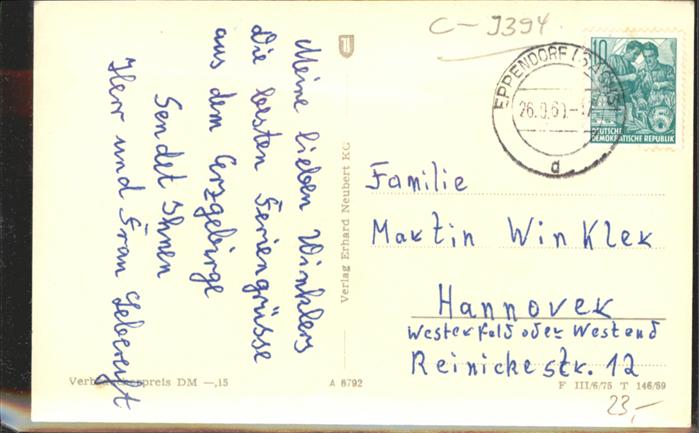 C-J394
Meine lieben Winklers
Die besten Feriengrüsse
aus dem Erzgebirge
Sendet Ihnen
Herr und Frau
Verlag Erhard Neubert KG
EPPENDORF
26.9.60
d
10
DEUTSCHE
DEMOKRATISCHE REPUBLIK
5
Familie
Martin Winkler
Hannover
Westerfeld oder Westend
Reinickestr. 12
Verbraucherpreis DM —,15
A 6792
F III/6/75 T 146/59
23,-